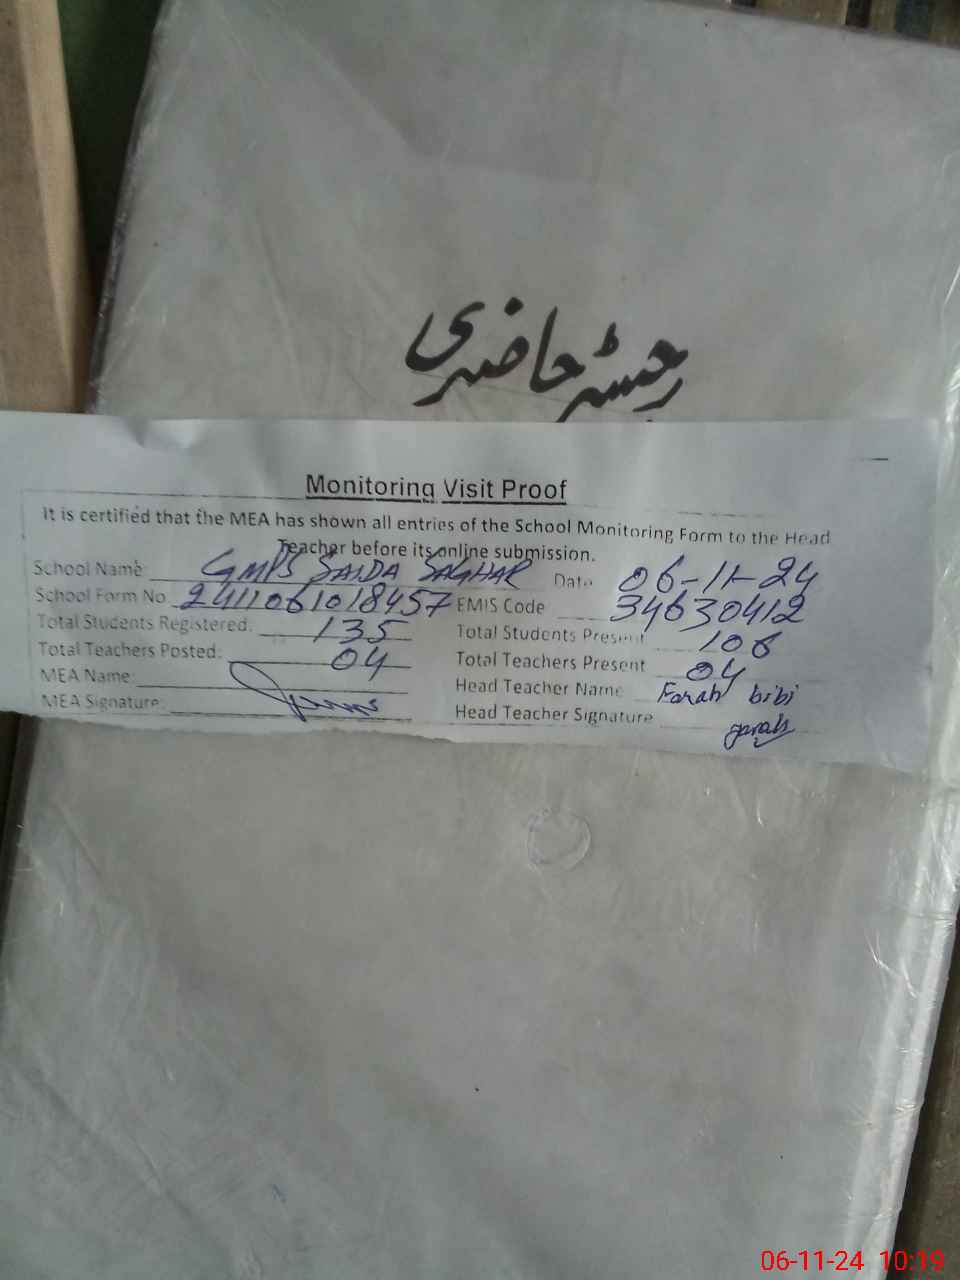 رجسٹر حاضری
Monitoring Visit Proof
It is certified that the MEA has shown all entries of the School Monitoring Form to the Head
Teacher before its online submission.
School Name GMPS SAIDA SAGHAR Date 06-11-24
School Form No. 2411061018457 EMIS Code 34630412
Total Students Registered: 135 Total Students Present 106
Total Teachers Posted: 04 Total Teachers Present 04
MEA Name: Head Teacher Name Farah bibi
MEA Signature: Head Teacher Signature farah
06-11-24 10:19